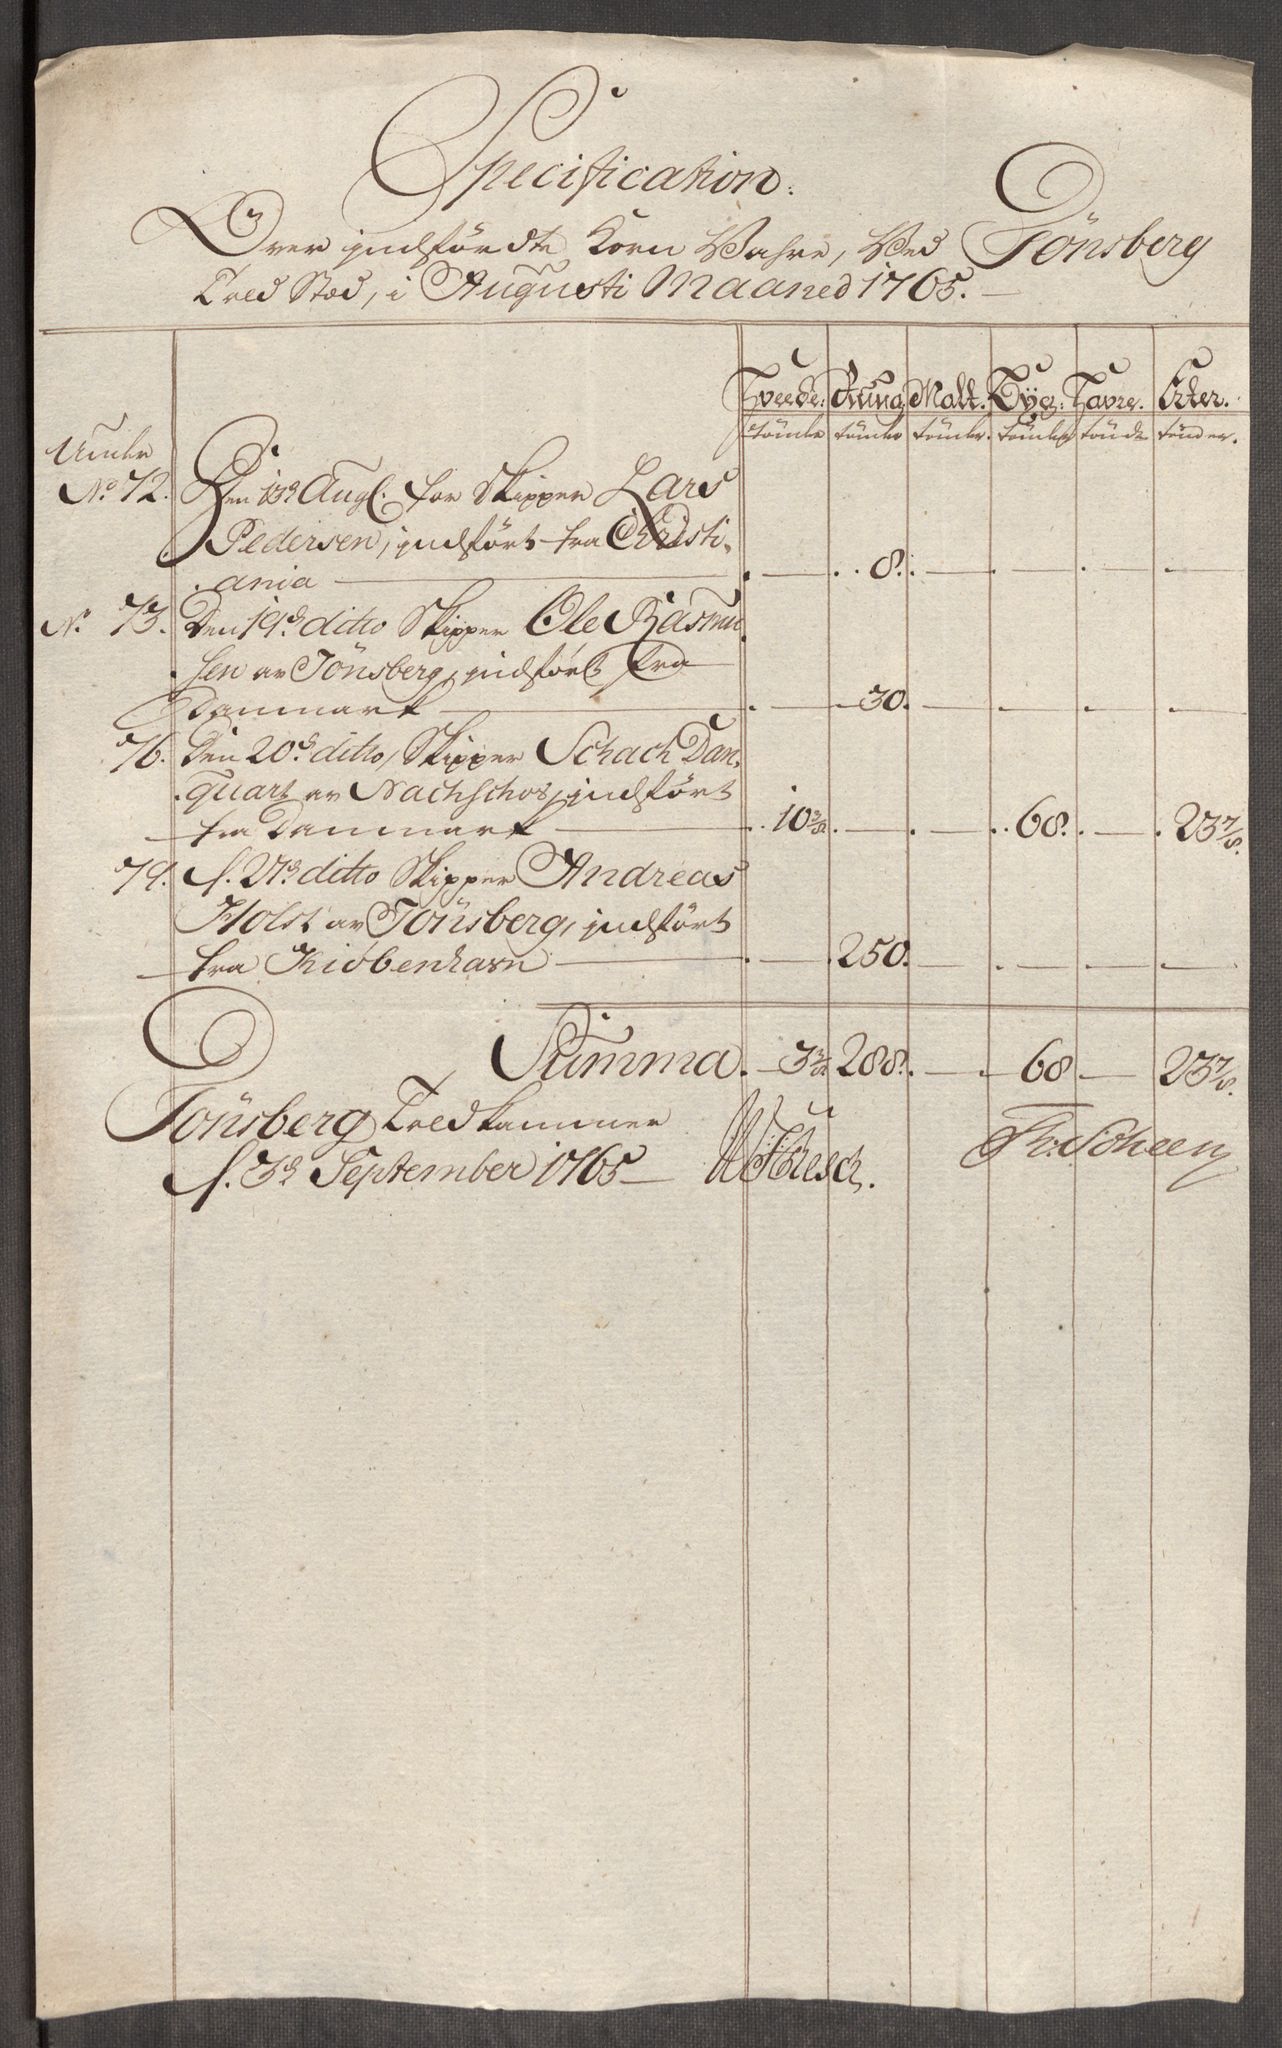 Specification.
Over indfördte Korn Wahre, Wed Tönsberg
Told Stæd, i Augusti Maaned 1765.
Hveede. Rúúg Malt. Býg. Havre. Erter.
tönder tönder tönder. tönder tönder tönder.
No. 72. Den 13de Aug. for Skipper Lars
Pedersen, indfört fra Christi-
ania 8.
N. 73. Den 19de ditto Skipper Ole Rasmu
sen av Tönsberg, indfört fra
Danmark 30.
76. Den 20de ditto, Skipper Schach Dan-
quart av Nachschov, indfört
fra Danmark 10 3/8 68. 23 7/8.
79. d. 27de ditto Skipper Andreas
Holst av Tönsberg, indfört
fra Kiöbenhavn 250.
Summa. 288. 68 23 7/8.
Tönsberg Told Kammer
d. 3de September 1765